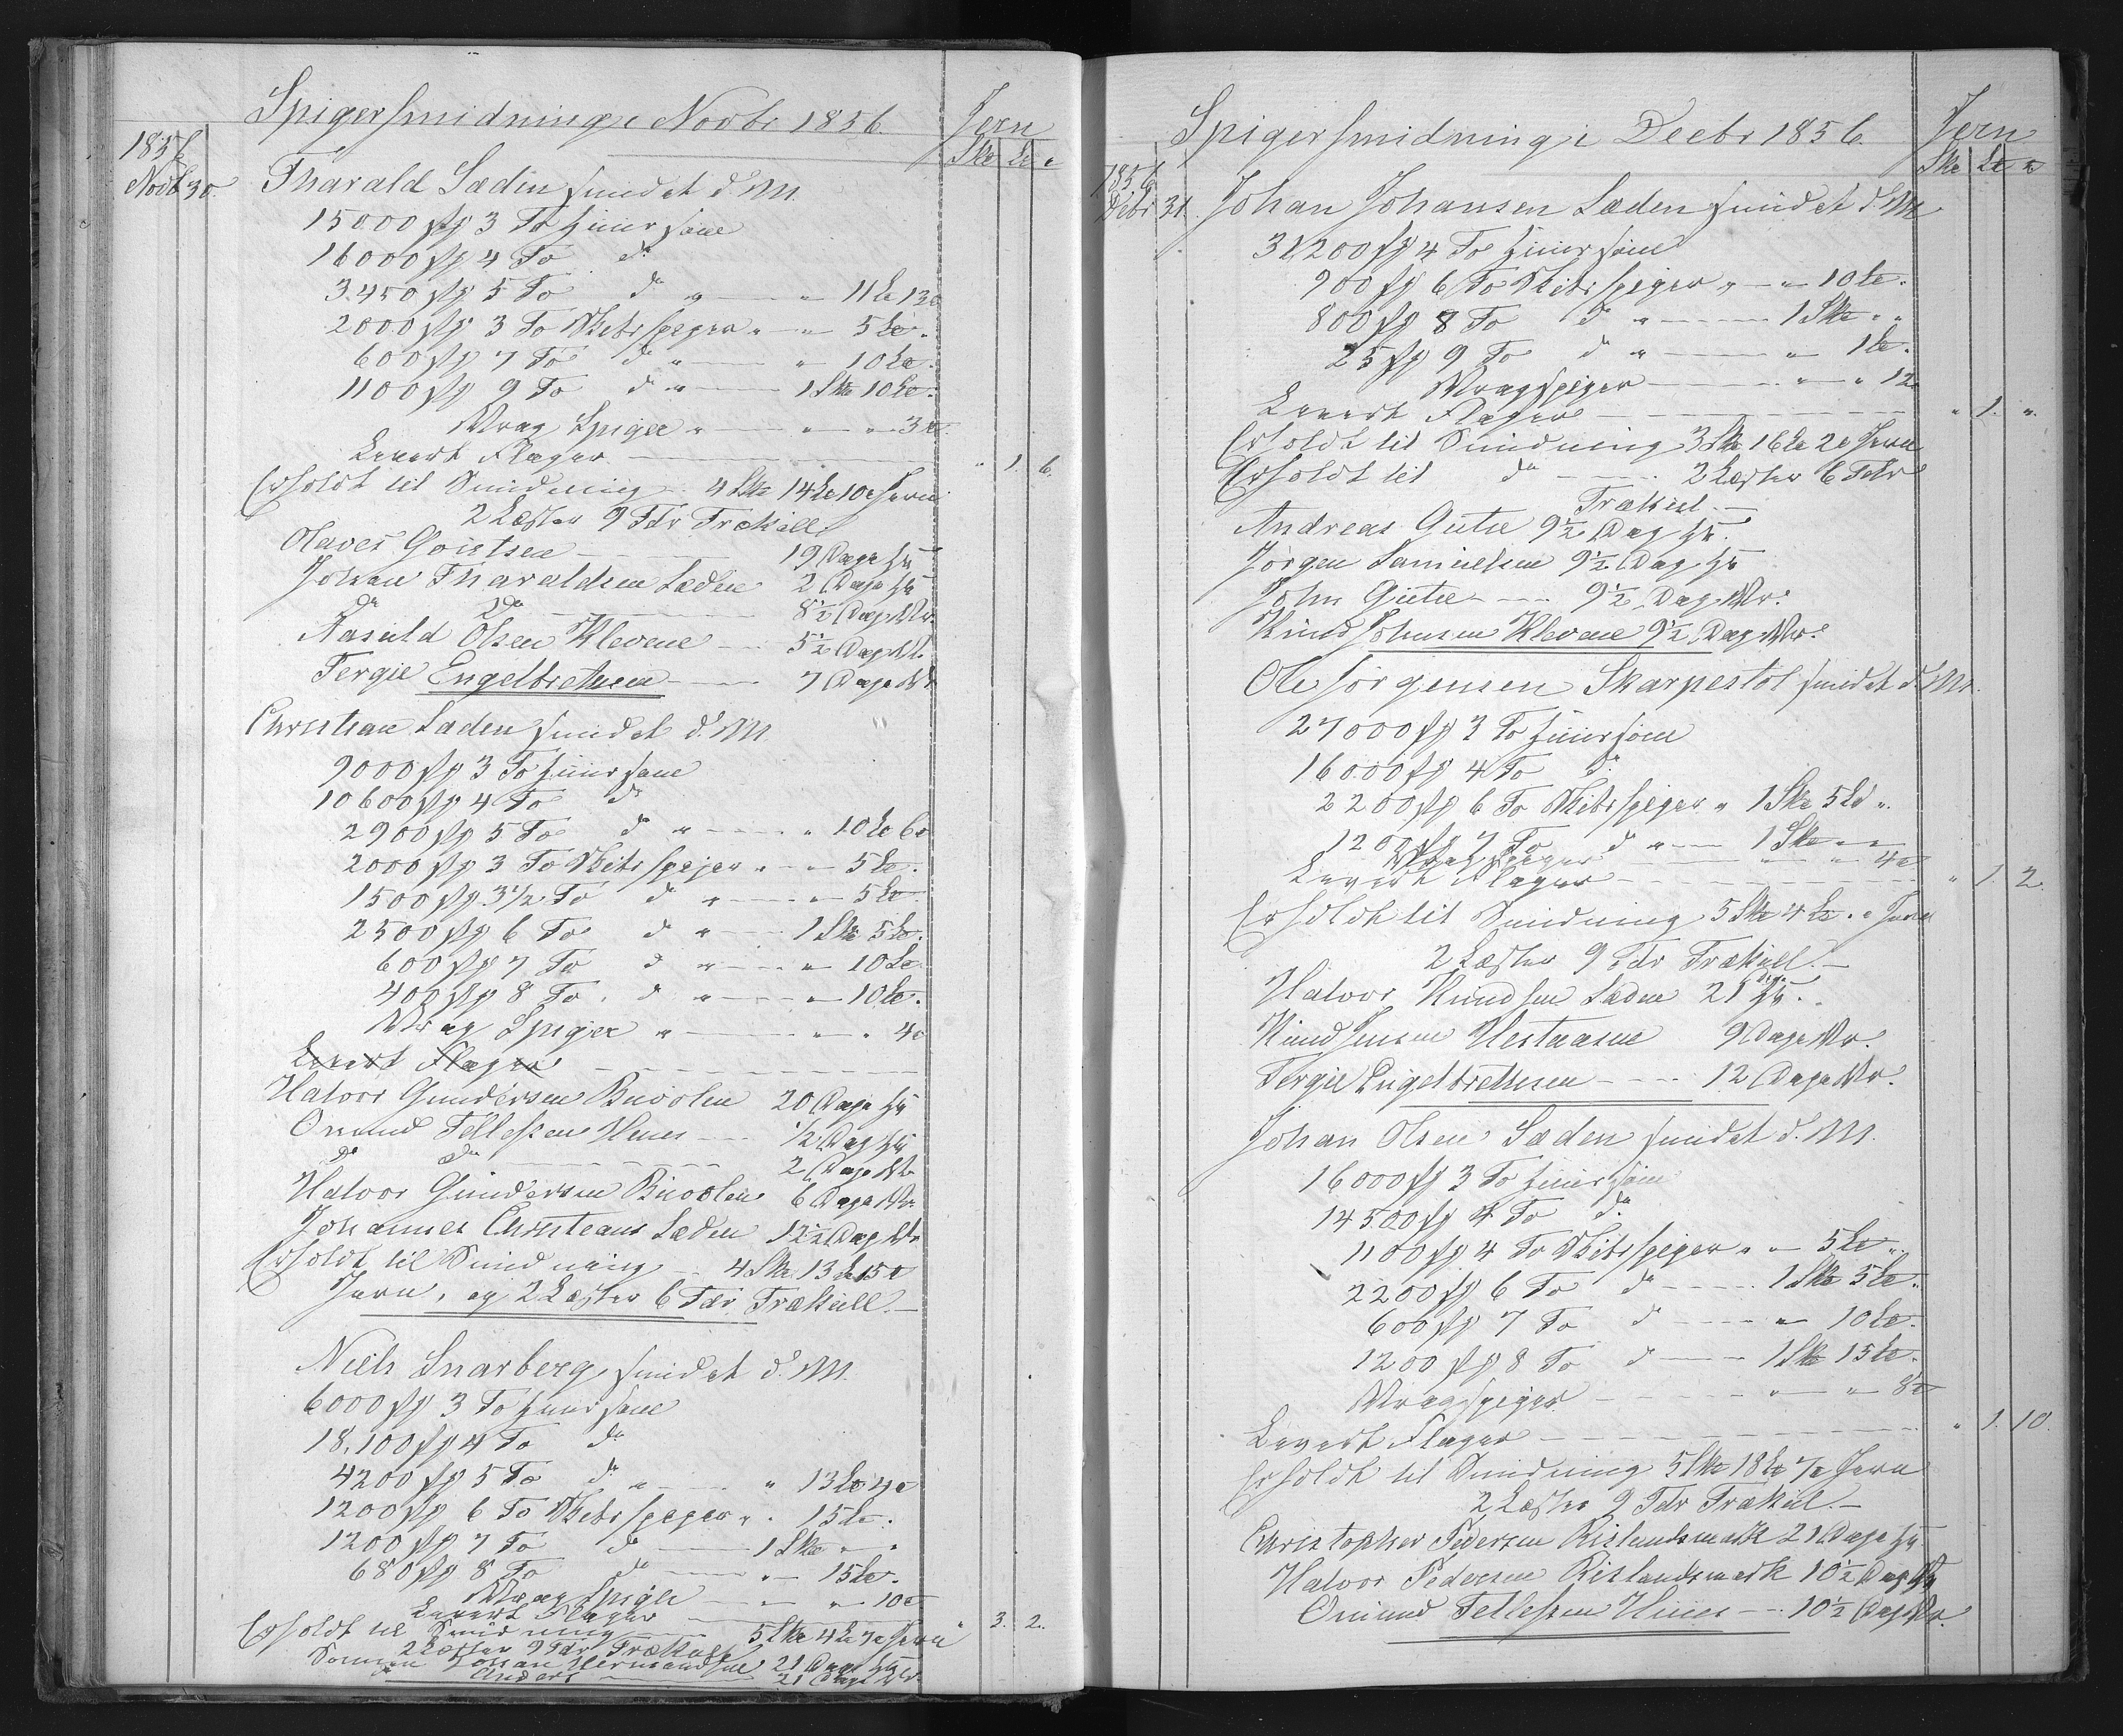 Spigersmidning i Novbr 1856.
Jern
Sk℔ L℔ ℔
1856
Novb 30. Tharald Læden smidet d. M.
15000 stk 3 To
16000 stk 4 To do
3450 stk 5 To do " — " 11 L℔ 13 ℔
2000 stk 3 To Spiger " — " 5 L℔ "
600 stk 7 To do " — " 10 L℔.
1100 stk 9 To do " — 1 Sk℔ 10 L℔.
Vrag Spiger " — " — " 3 ℔
Levert Flager — " 1. 6.
Erholdt til Smidning — 4 Sk℔ 14 L℔ 10 ℔ Jern
2 Læster 9 Tdr Trækull
Olaves — 19 Dage
Johan Tharaldsen Læden 2 Dage
do do — 8½ Dag Vr.
Aasuld Olsen Klevene — 5½ Dag Vr.
Tergie Engelbrethsen — 7 Dage Vr
Christian Læden smidet d. M
9000 stk 3 To
10600 stk 4 To do
2900 stk 5 To do " — " 10 L℔ 6 ℔
2000 stk 3 To Spiger " — " 5 L℔.
1500 stk 3½ To do " — " 5 L℔.
2500 stk 6 To do " — 1 Sk℔ 5 L℔.
600 stk 7 To do " — " 10 L℔
400 stk 8 To do " — " 10 L℔.
Vrag Spiger " — " " 4 ℔
Levert Flager —
Halvor Gundersen Buvolen 20 Dage
Omund Tellefsen — ½ Dag
do do — 2 Dage Vr
Halvor Gundersen Buvolen 6 Dage Vr
Johannes Christians Læden 12½ Dag Vr
Erholdt til Smidning — 4 Sk℔ 13 L℔ 15 ℔
Jern, og 2 Læster 6 Tdr Trækull. —
Niels Snarberg smidet d. M.
6000 stk 3 To
18,100 stk 4 To do
4200 stk 5 To do " — " 13 L℔ 4 ℔
1200 stk 6 To Spiger " " 15 L℔.
1200 stk 7 To do — 1 Sk℔ " "
680 stk 8 To do — " 15 L℔.
Vrag Spiger — " — " 10 ℔
Levert Flager — " 3. 2.
Erholdt til Smidning — 5 Sk℔ 4 L℔ 7 ℔ Jern
2 Læster 9 Tdr Trækull
Johan 21 Dage
do Anders — 21 Dage Vr.
Spigersmidning i Decbr 1856.
Jern
Sk℔ L℔ ℔
1856
Debr 31. Johan Johansen Læden smidet d. M
31200 stk 4 To
900 stk 6 To Spiger " — " 10 L℔.
800 stk 8 To do " — 1 Sk℔ " "
25 stk 9 To do " — " 1 L℔.
Vragspiger — " — " 12
Levert Flager — " 1. ".
Erholdt til Smidning 3 Sk℔ 16 L℔ 2 ℔ Jern
Erholdt til do — 2 Læster 6 Tdr
Trækul. —
Andreas Gutu 9½ Dag
Jørgen Samuelsen 9½ Dag
John Gutu — 9½ Dag Vr.
Knud Johnsen Klevene 9½ Dag Vr.
Ole Jörgensen Skarpestöl smidet d. M.
27000 stk 3 To
16000 stk 4 To do
2200 stk 6 To Spiger " 1 Sk℔ 5 L℔ ".
1200 stk 7 To do " — 1 Sk℔ " "
Vrag Spiger — " " 4 ℔
Levert Flager — " 1. 2.
Erholdt til Smidning 5 Sk℔ 4 L℔ " " Jern
2 Læster 9 Tdr Trækull. —
Halvor Knudsen Læden 21 Dage
Knud Jensen Hestaasen 9 Dage Vr.
Tergie Engelbrethsen — 12 Dage Vr.
Johan Olsen Læden smidet d. M.
16000 stk 3 To
14500 stk 4 To do
1100 stk 4 To Spiger " " 5 L℔ "
2200 stk 6 To do — 1 Sk℔ 5 L℔.
600 stk 7 To do — " 10 L℔.
1200 stk 8 To do — 1 Sk℔ 15 L℔.
Vragspiger — " — " 8 ℔
Levert Flager — " 1. 10.
Erholdt til Smidning 5 Sk℔ 18 L℔ 7 ℔ Jern
2 Læster 9 Tdr Trækul. —
Christopher Pedersen Rislandsmark 21 Dage
Halvor Pedersen Rislandsmark 10½ Dag
Omund Tellefsen — 10½ Dag Vr.